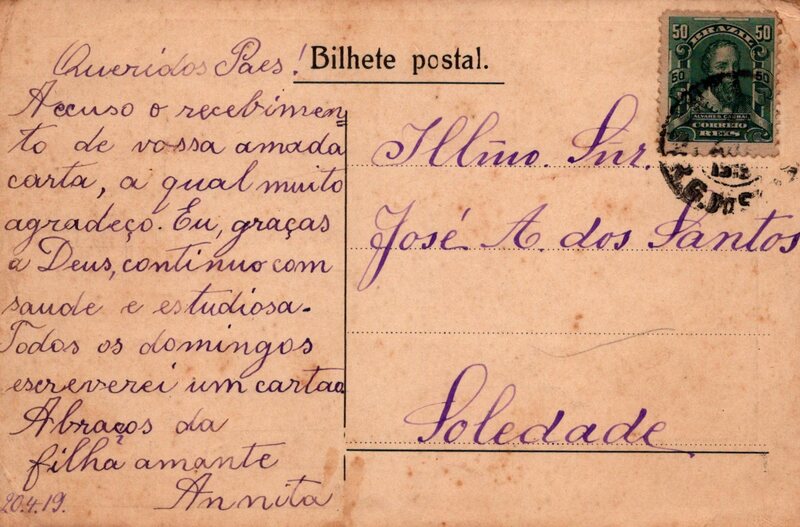 Bilhete postal.
Queridos Paes!
Accuso o recebimen=
to de vossa amada
carta, a qual muito
agradeço. Eu, graças
a Deus, continuo com
saude e estudiosa.
Todos os domingos
escreverei um cartao
Abraços da
filha amante
Annita
20.4.19.
Illmo. Snr.
José A. dos Santos
Soledade
50 50
BRAZIL
50 50
ALVARES CABRAL
CORREIO
REIS